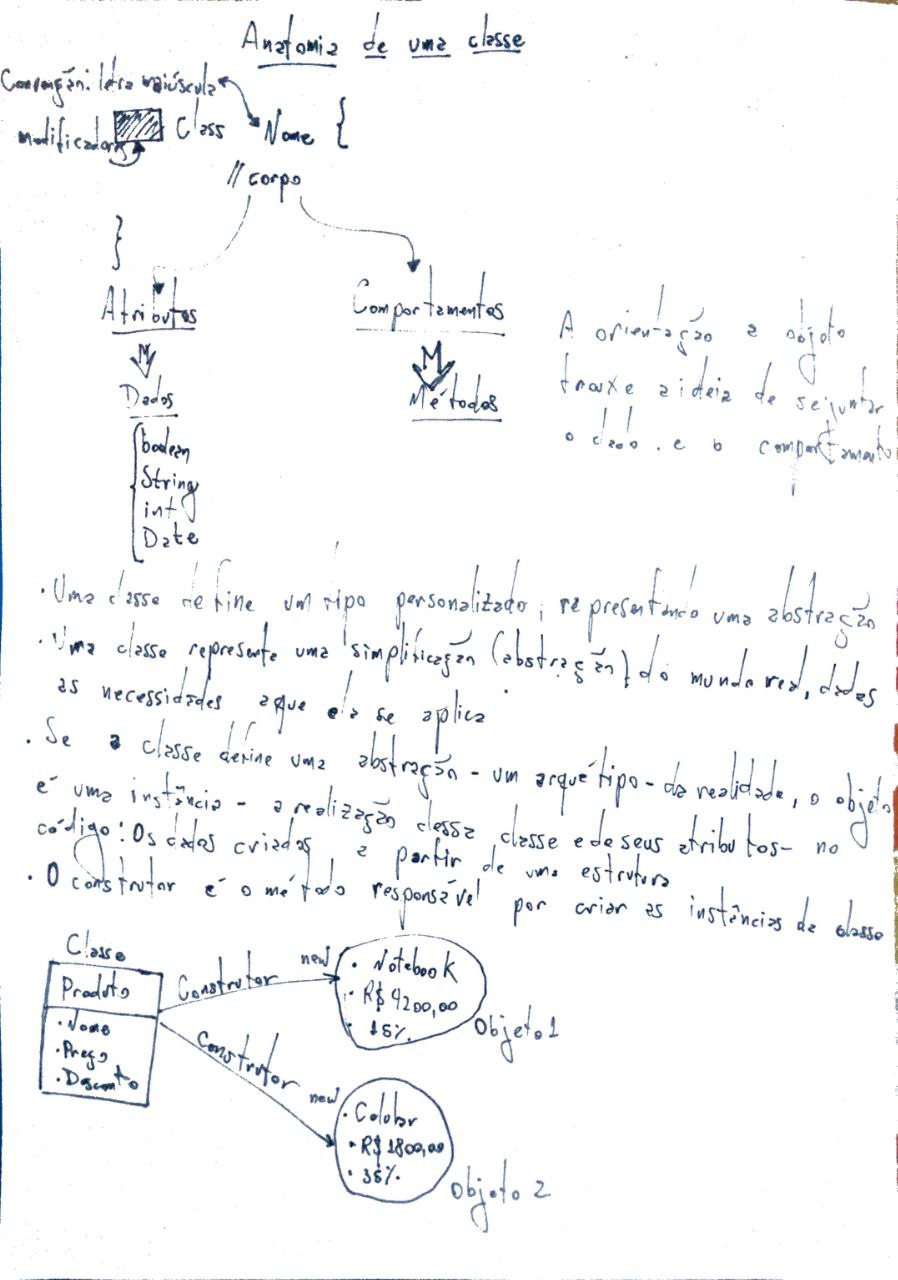 Anatomia de uma classe
Convenção: letra maiúscula
modificadores Class Nome {
// corpo
}
Atributos
Comportamentos
Dados
Métodos
boolean
String
int
Date
A orientação a objeto
trouxe a ideia de se juntar
o dado e o comportamento
• Uma classe define um tipo personalizado, representando uma abstração
• Uma classe representa uma simplificação (abstração) do mundo real, dadas
as necessidades a que ela se aplica
• Se a classe define uma abstração - um arquétipo - da realidade, o objeto
é uma instância - a realização dessa classe e de seus atributos - no
código: Os dados criados a partir de uma estrutura
• O construtor é o método responsável por criar as instâncias da classe
Classe
Produto
• Nome
• Preço
• Desconto
Construtor new
• Notebook
• R$ 4200,00
• 15%
Objeto 1
Construtor new
• Celular
• R$ 1800,00
• 35%
Objeto 2